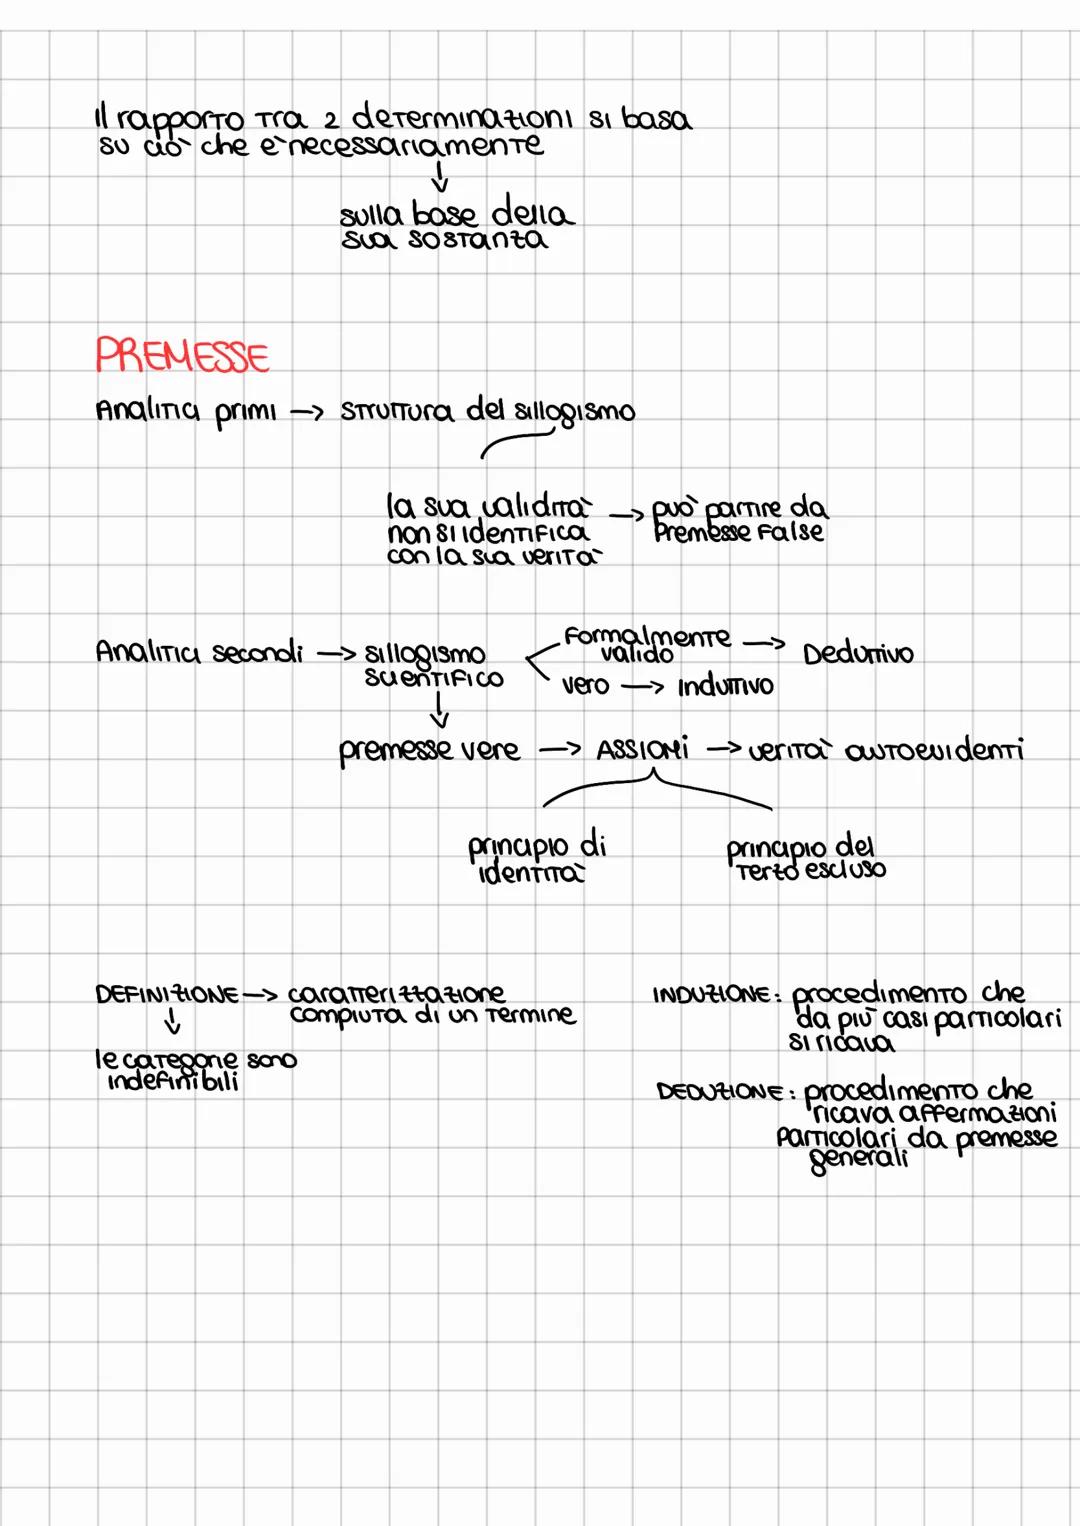 Il rapporto tra 2 determinazioni si basa
su ciò che è necessariamente
↓
sulla base della
sua sostanza
PREMESSE
Analitici primi → struttura del sillogismo
la sua validità → può partire da
non si identifica premesse false
con la sua verità
Analitici secondi → sillogismo formalmente → Deduttivo
scientifico valido
vero → induttivo
↓
premesse vere → ASSIOMI → verità autoevidenti
principio di principio del
identità terzo escluso
DEFINIZIONE → caratterizzazione
compiuta di un termine
↓
le categorie sono
indefinibili
INDUZIONE: procedimento che
da più casi particolari
si ricava
DEDUZIONE: procedimento che
ricava affermazioni
particolari da premesse
generali